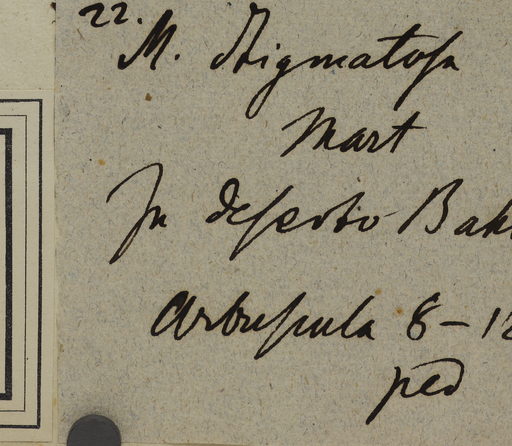 22.
M. Stigmatosa
Mart
In deserto Bah
Arbuscula 8-12
ped